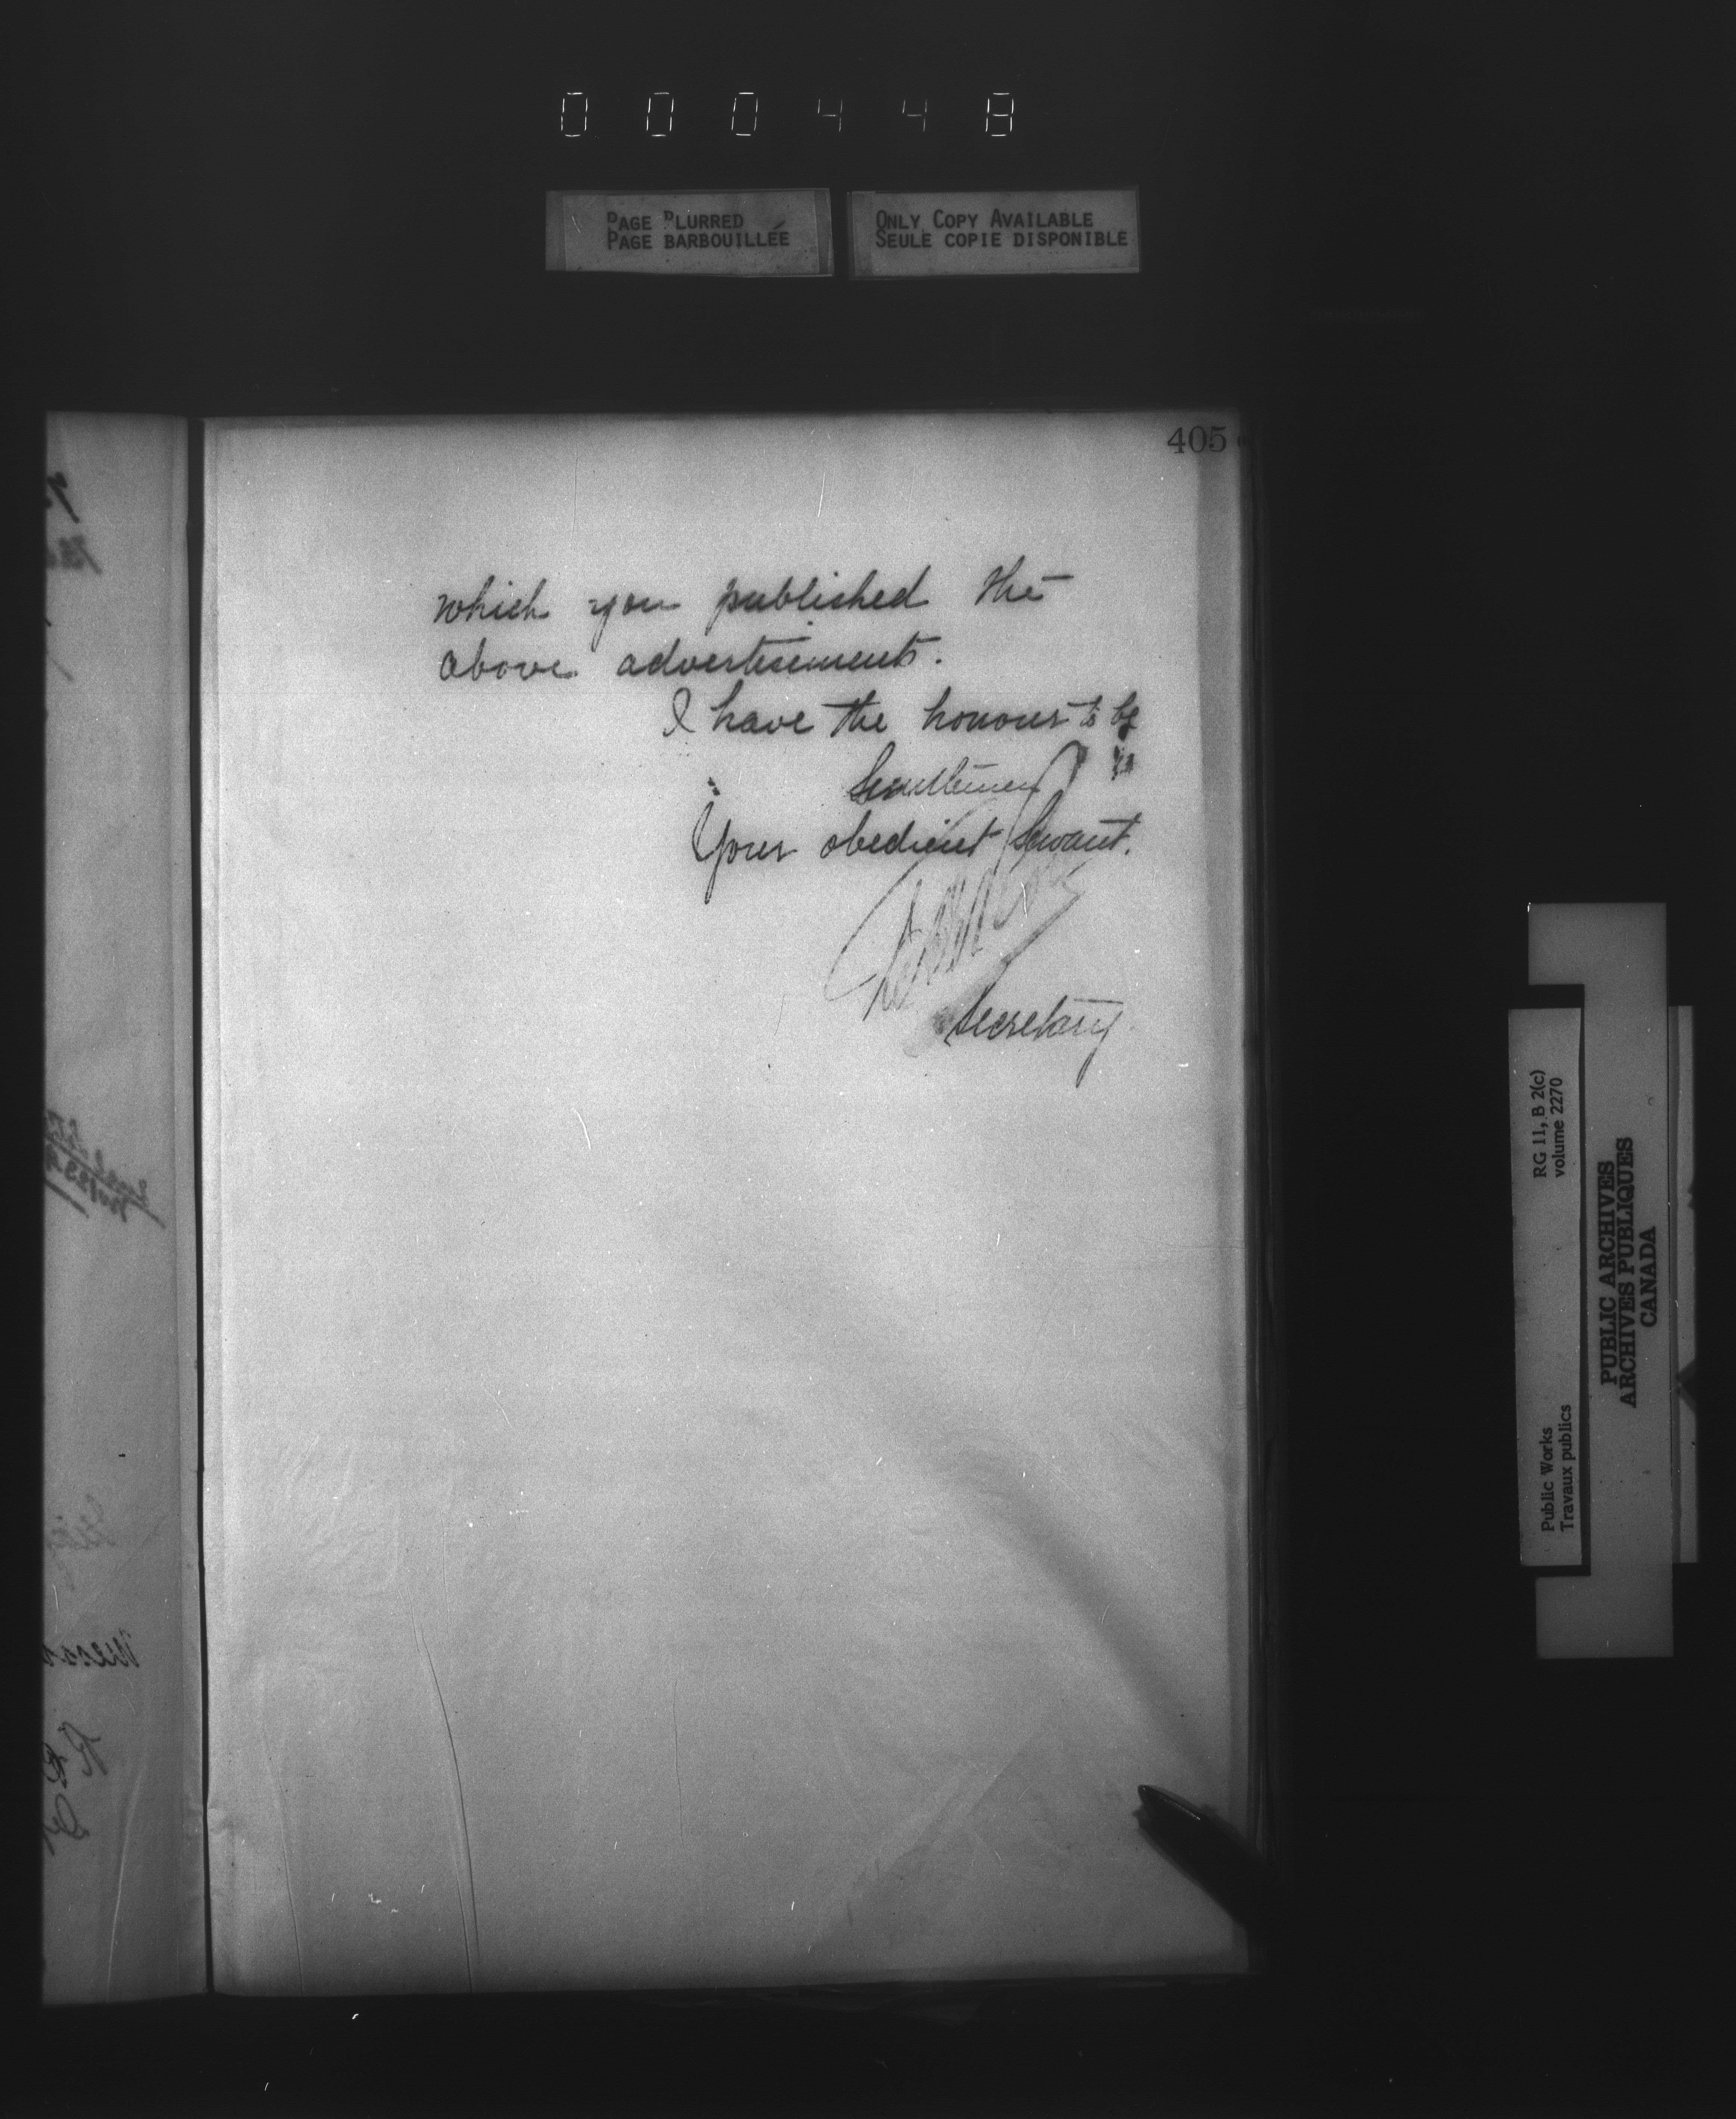 000448
PAGE BLURRED
PAGE BARBOUILLÉE
ONLY COPY AVAILABLE
SEULE COPIE DISPONIBLE
405
which you published the
above advertisements.
I have the honour to be
Gentlemen
Your obedient Servant.
Secretary
RG 11, B 2(c)
volume 2270
Public Works
Travaux publics
PUBLIC ARCHIVES
ARCHIVES PUBLIQUES
CANADA